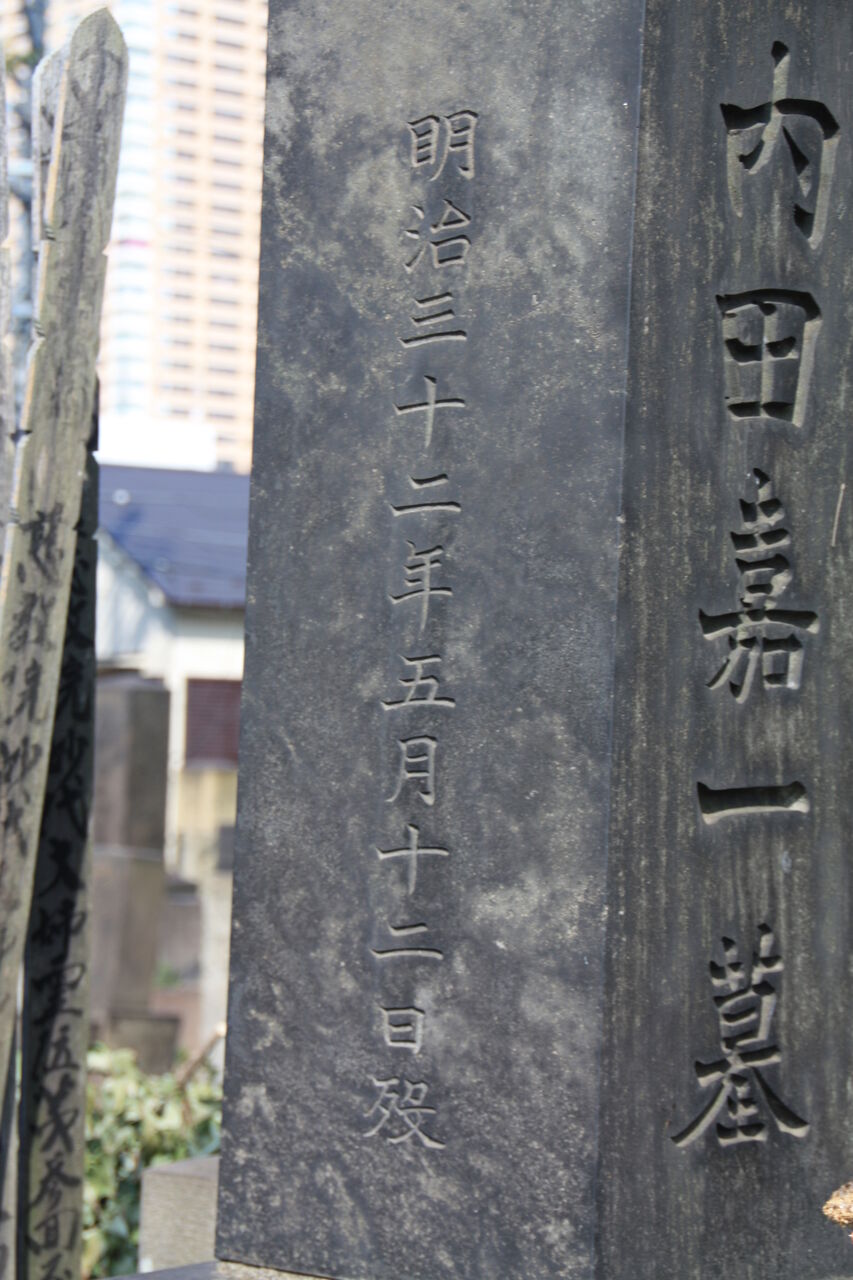 内田嘉一墓
明治三十二年五月十二日歿